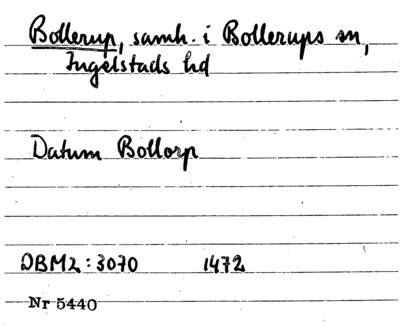 Bollerup, samh. i Bollerups sn,
Ingelstads hd
Datum Bollorp
DBM2:3070 1472
Nr 5440